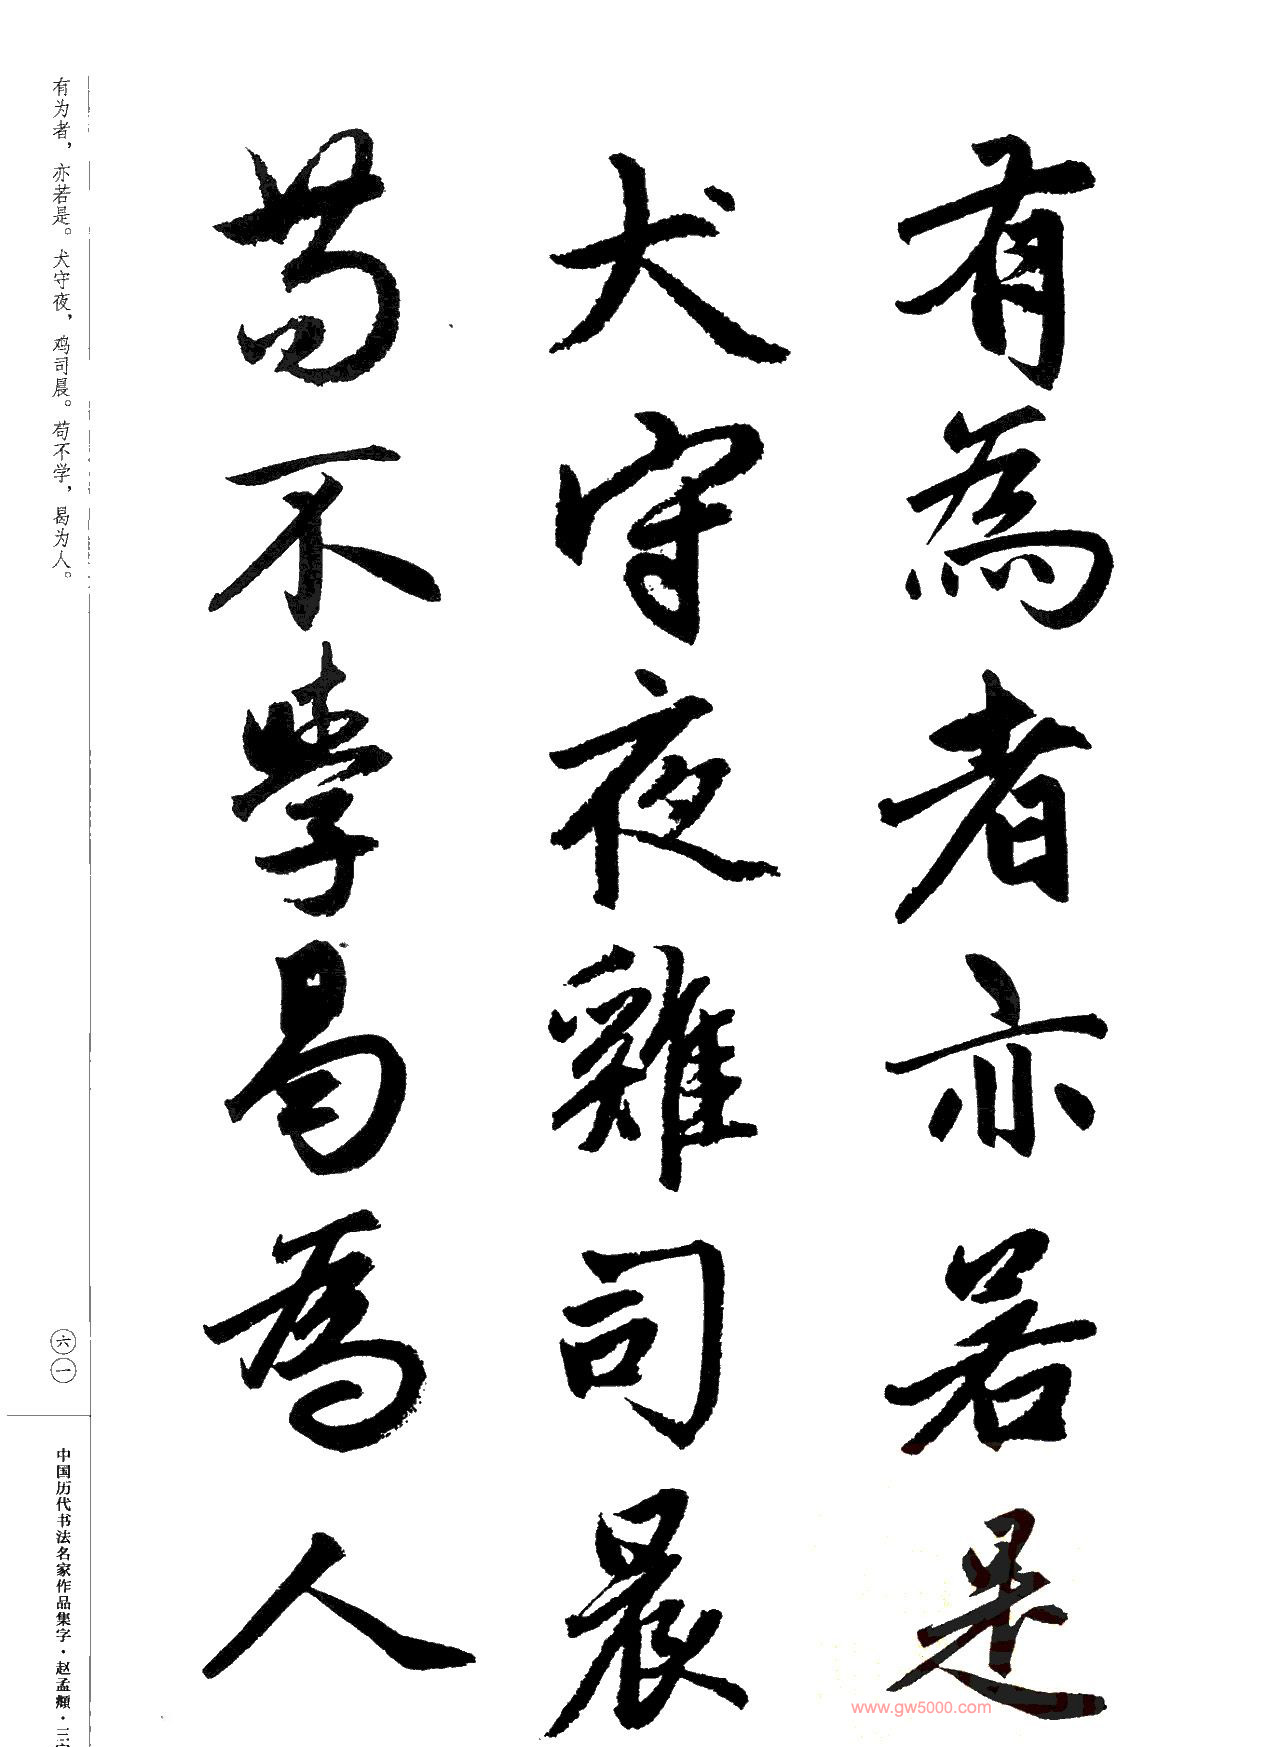 有為者亦若是
犬守夜雞司晨
茍不學曷為人
有为者，亦若是。犬守夜，鸡司晨。苟不学，曷为人。
六一
中国历代书法名家作品集字·赵孟頫·三
www.gw5000.com